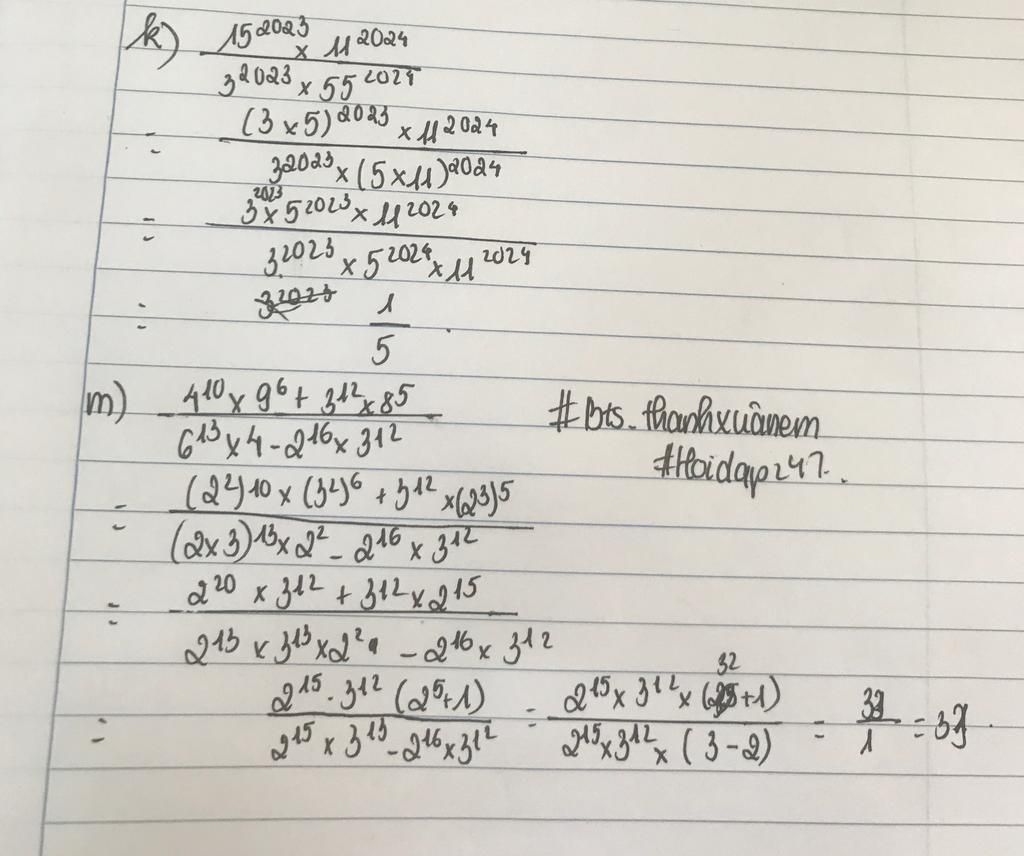 k) 15^2023 × 11^2024
3^2023 × 55^2024
= (3 × 5)^2023 × 11^2024
3^2023 × (5 × 11)^2024
= 3^2023 × 5^2023 × 11^2024
3^2023 × 5^2024 × 11^2024
= 1
5
m) 4^10 × 9^6 + 3^12 × 8^5
6^13 × 4 - 2^16 × 3^12
#Bts.thanhxuânem
#Hoidap247.
= (2^2)^10 × (3^2)^6 + 3^12 × (2^3)^5
(2×3)^13 × 2^2 - 2^16 × 3^12
= 2^20 × 3^12 + 3^12 × 2^15
2^13 × 3^13 × 2^2 - 2^16 × 3^12
= 2^15 · 3^12 (2^5+1) = 2^15 × 3^12 × (32+1) = 33 = 33.
2^15 × 3^13 - 2^16 × 3^12 2^15 × 3^12 × (3-2) 1